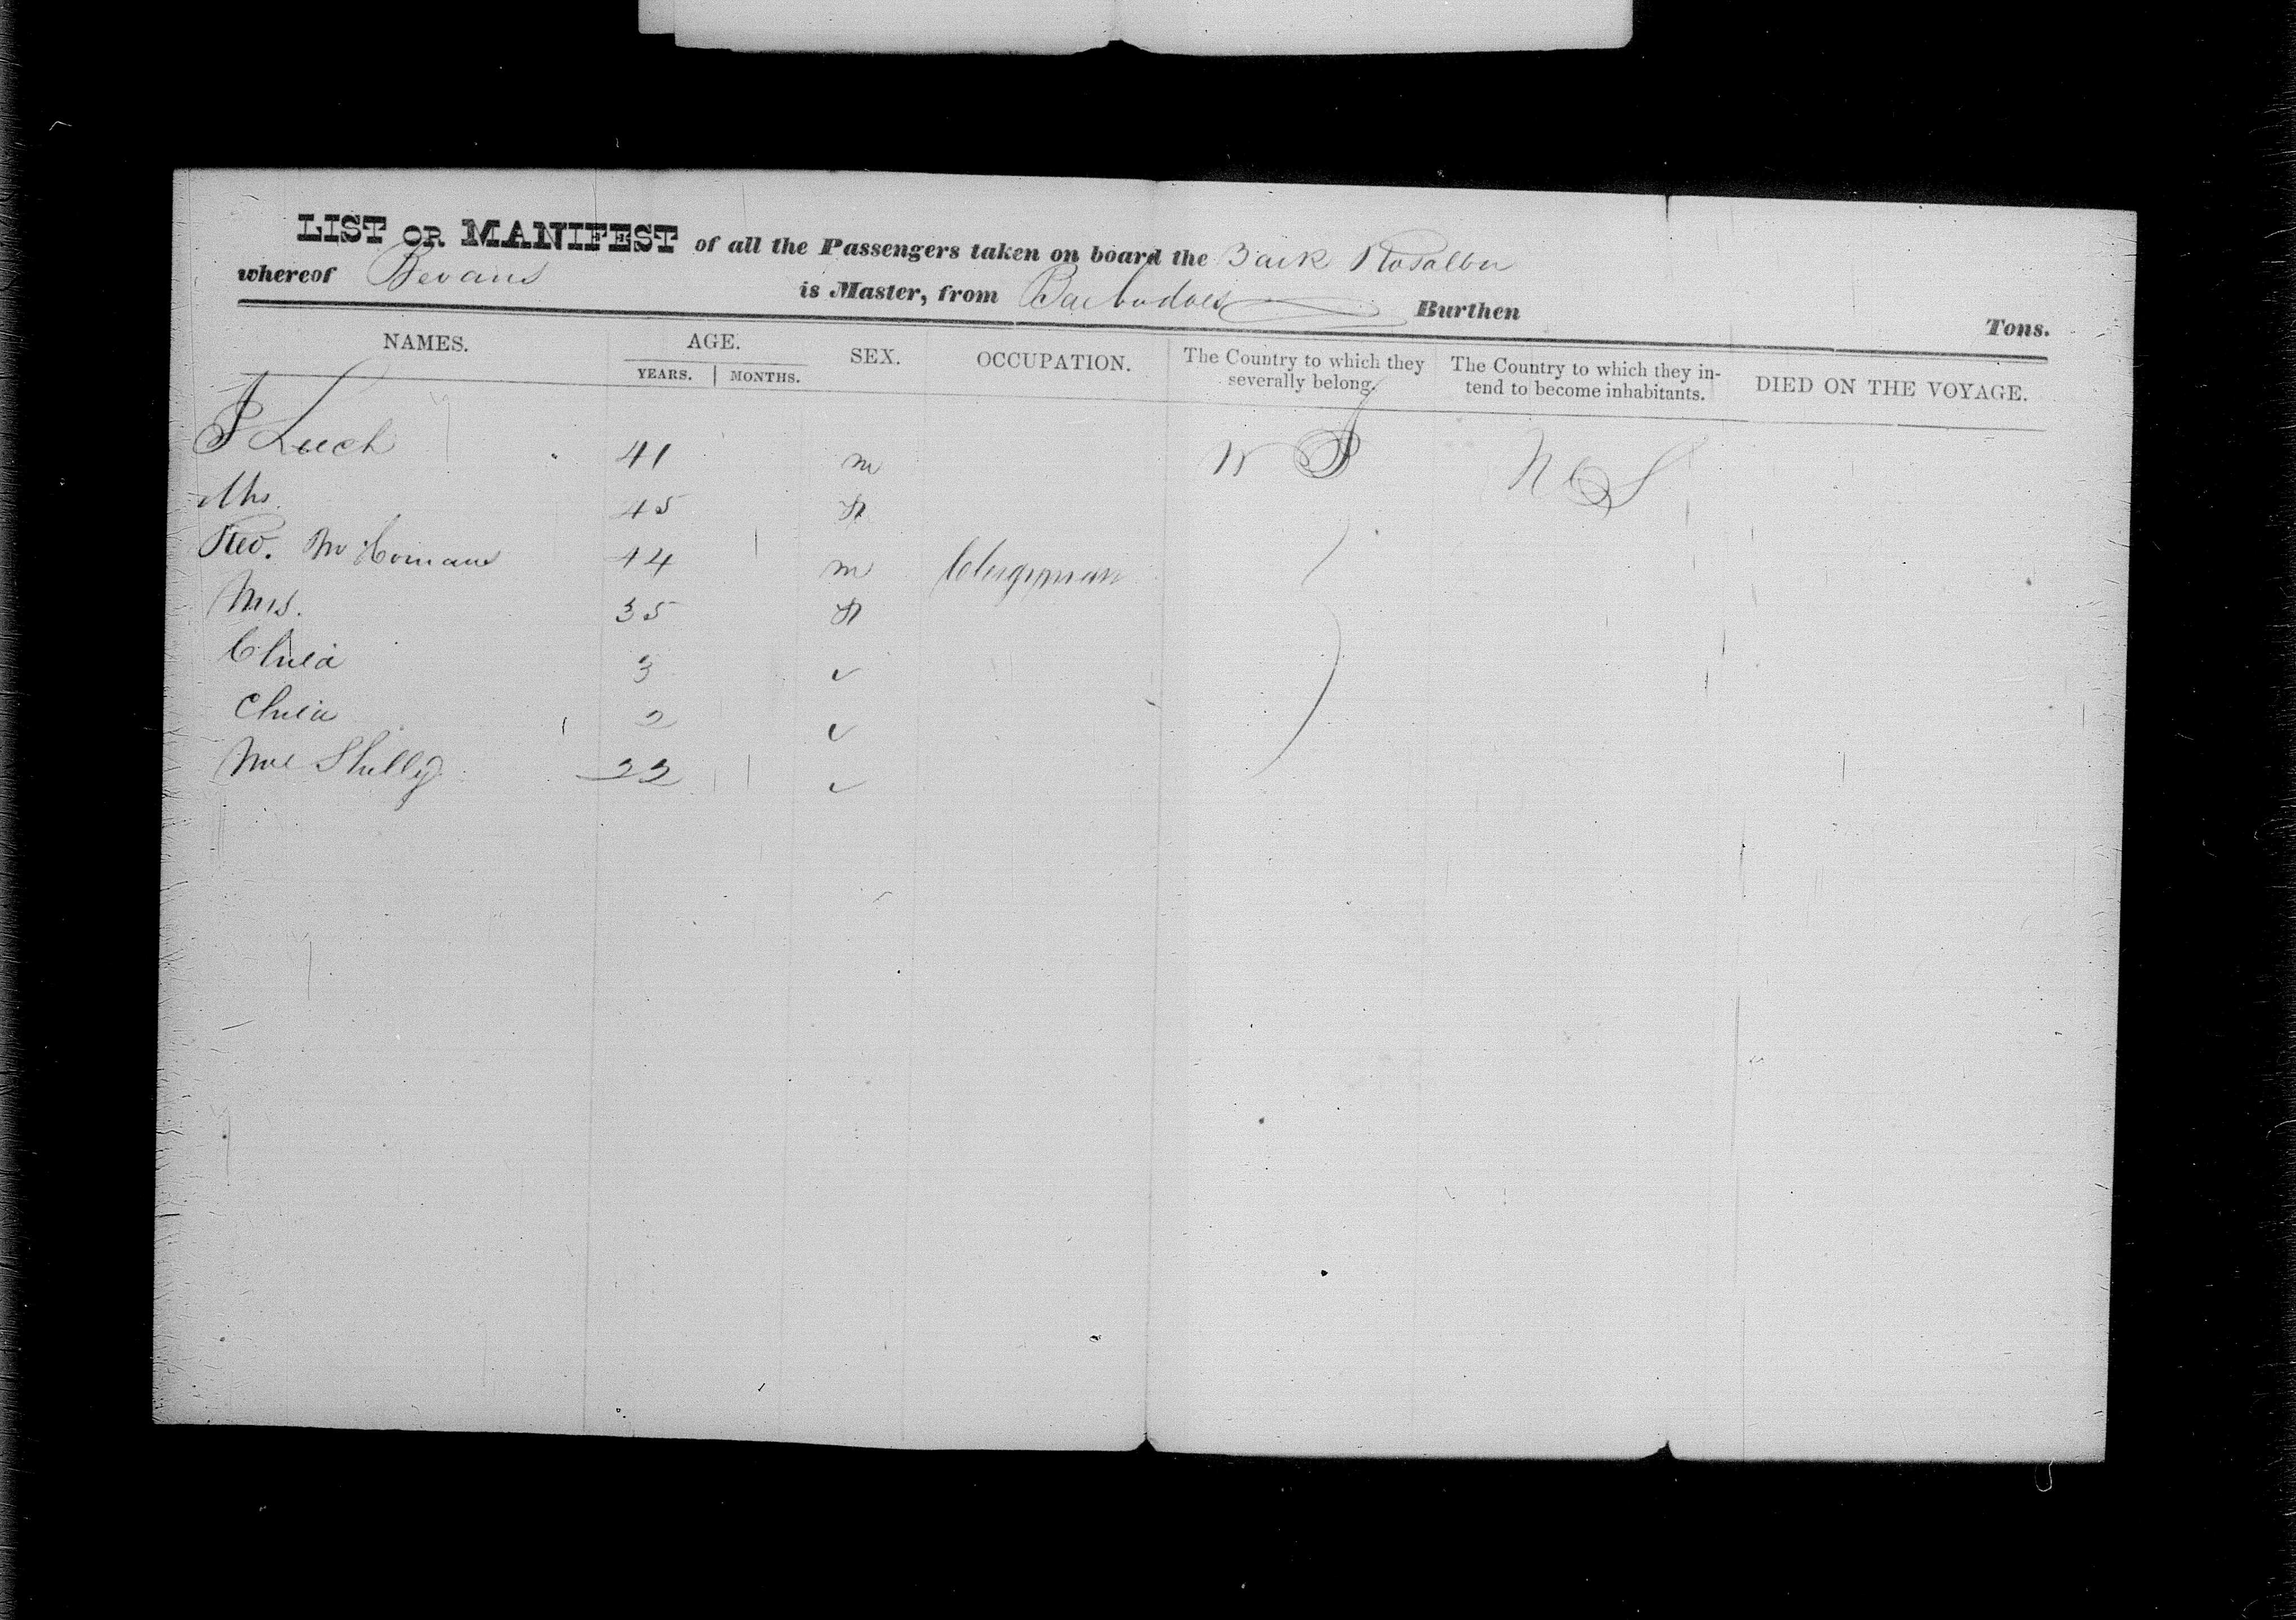 LIST OR MANIFEST of all the Passengers taken on board the Bark Rosalba
whereof Bevans is Master, from Barbadoes Burthen Tons.
NAMES. AGE. SEX. OCCUPATION. The Country to which they severally belong. The Country to which they intend to become inhabitants. DIED ON THE VOYAGE.
YEARS. MONTHS.
J Leech 41 m W I U S
Mrs 45 f
Rev. 44 m Clergyman
Mrs. 35 f
Child 3 ✓
Child 2 ✓
Shelly 22 ✓